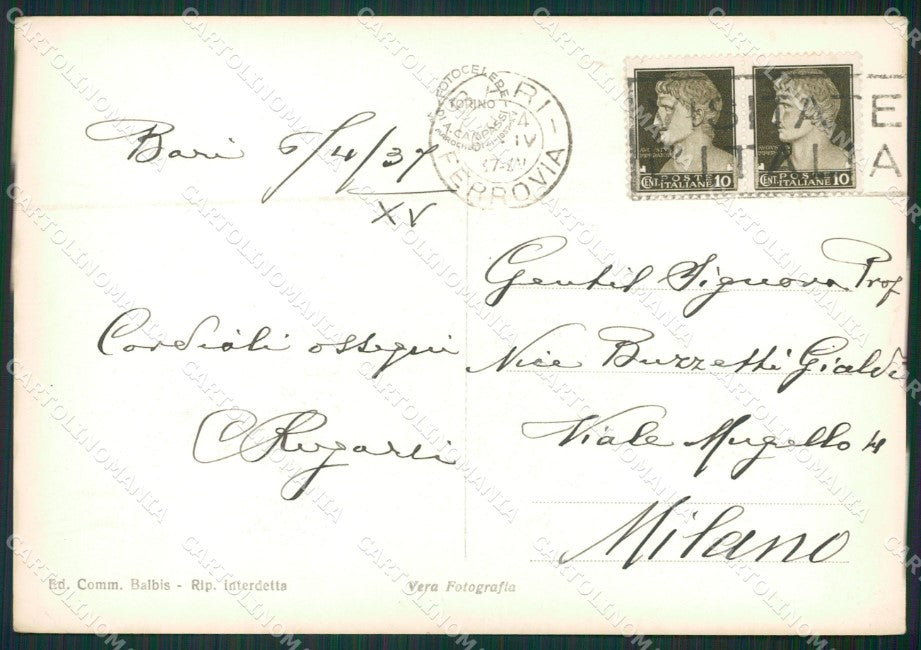 Bari 6/4/37
XV
Cordiali ossequi
FOTOCELERE
TORINO
A. CAMPASSI
BARI -
FERROVIA
VISITATE
ITALIA
POSTE
ITALIANE
CENT. 10
POSTE
ITALIANE
CENT. 10
Gentil Signora Prof
Nice Buzzetti Gialdi
Viale Mugello 4
Milano
Ed. Comm. Balbis - Rip. interdetta
Vera Fotografia
CARTOLINOMANIA